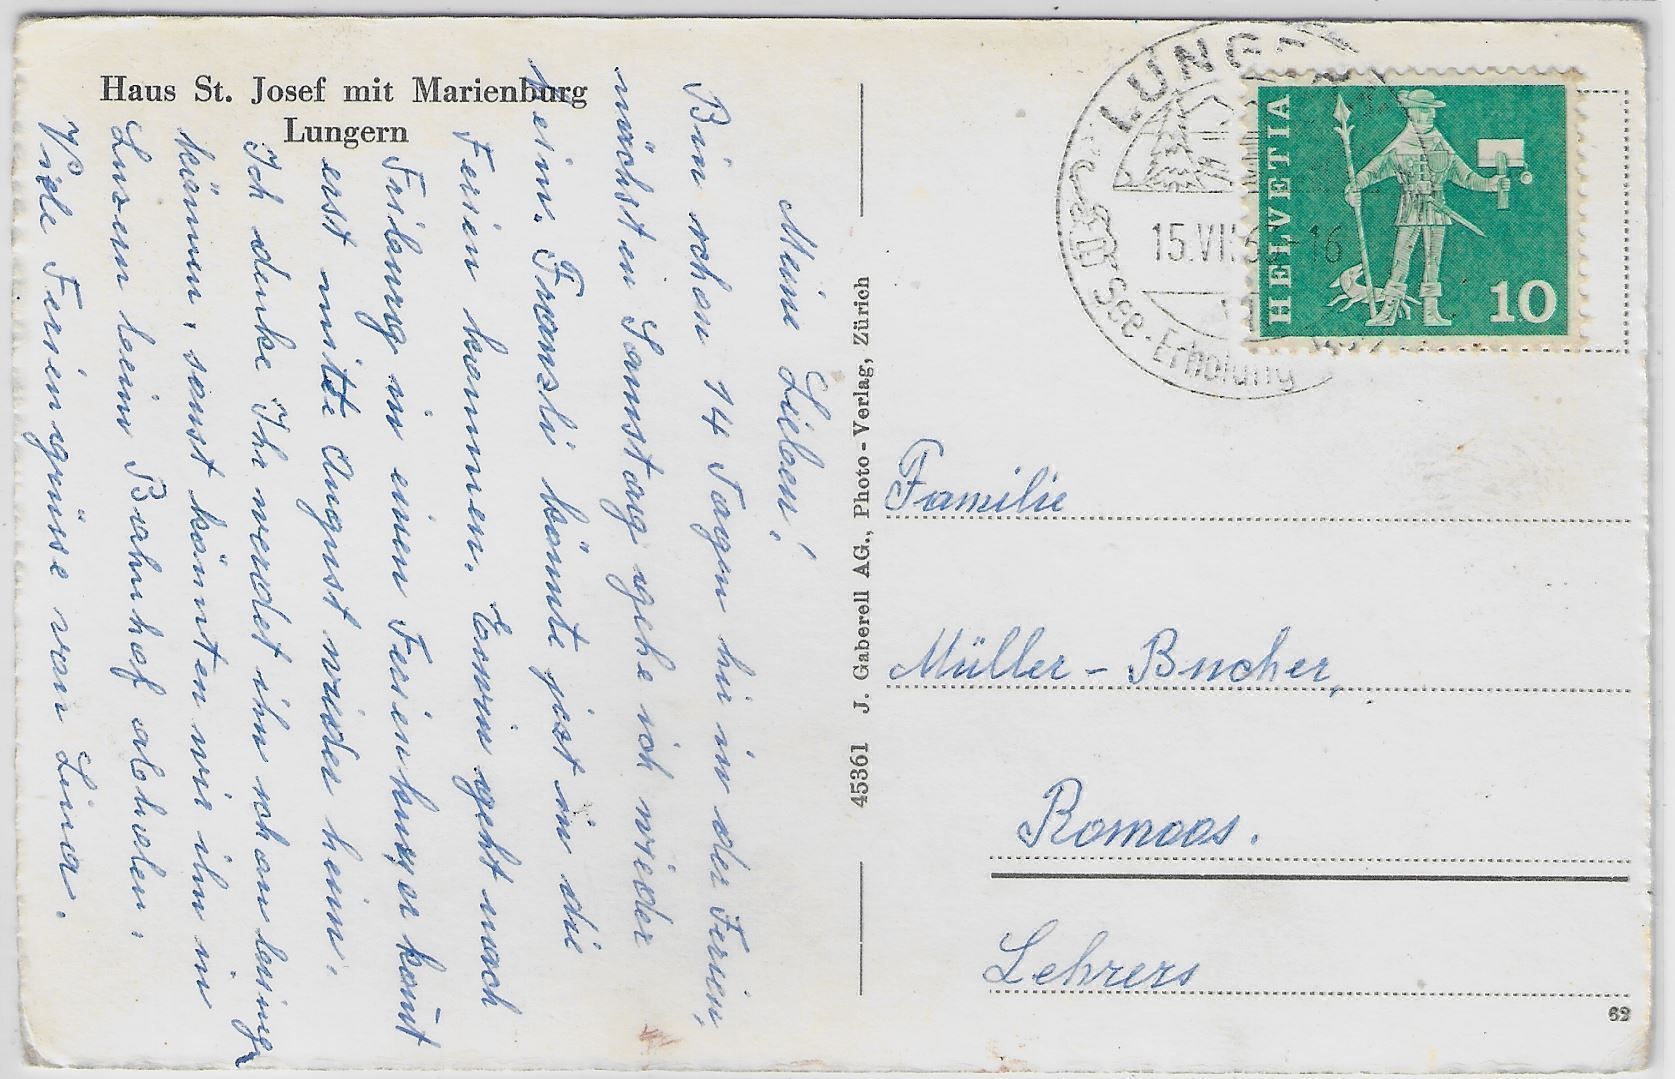 Haus St. Josef mit Marienburg
Lungern
Meine Lieben!
Bin schon 14 Tagen hir in der Ferien,
nächsten Samstag gehe ich wieder
heim. Fransli könnte jezt in die
Ferien kommen. Erwin geht nach
Friburg in einen Ferienkurs er komt
erst mitte August wider heim.
Ich denke Ihr werdet ihn schon
können, sonst könnten wir ihn in
Luzern beim Bahnhof abholen.
Viele Feriengrüsse von Lina.
45361 J. Gaberell AG., Photo-Verlag, Zürich
LUNG
15.VII
-16
See-Erholung
HELVETIA
10
Familie
Müller-Bucher,
Romoos.
Lehrers
62